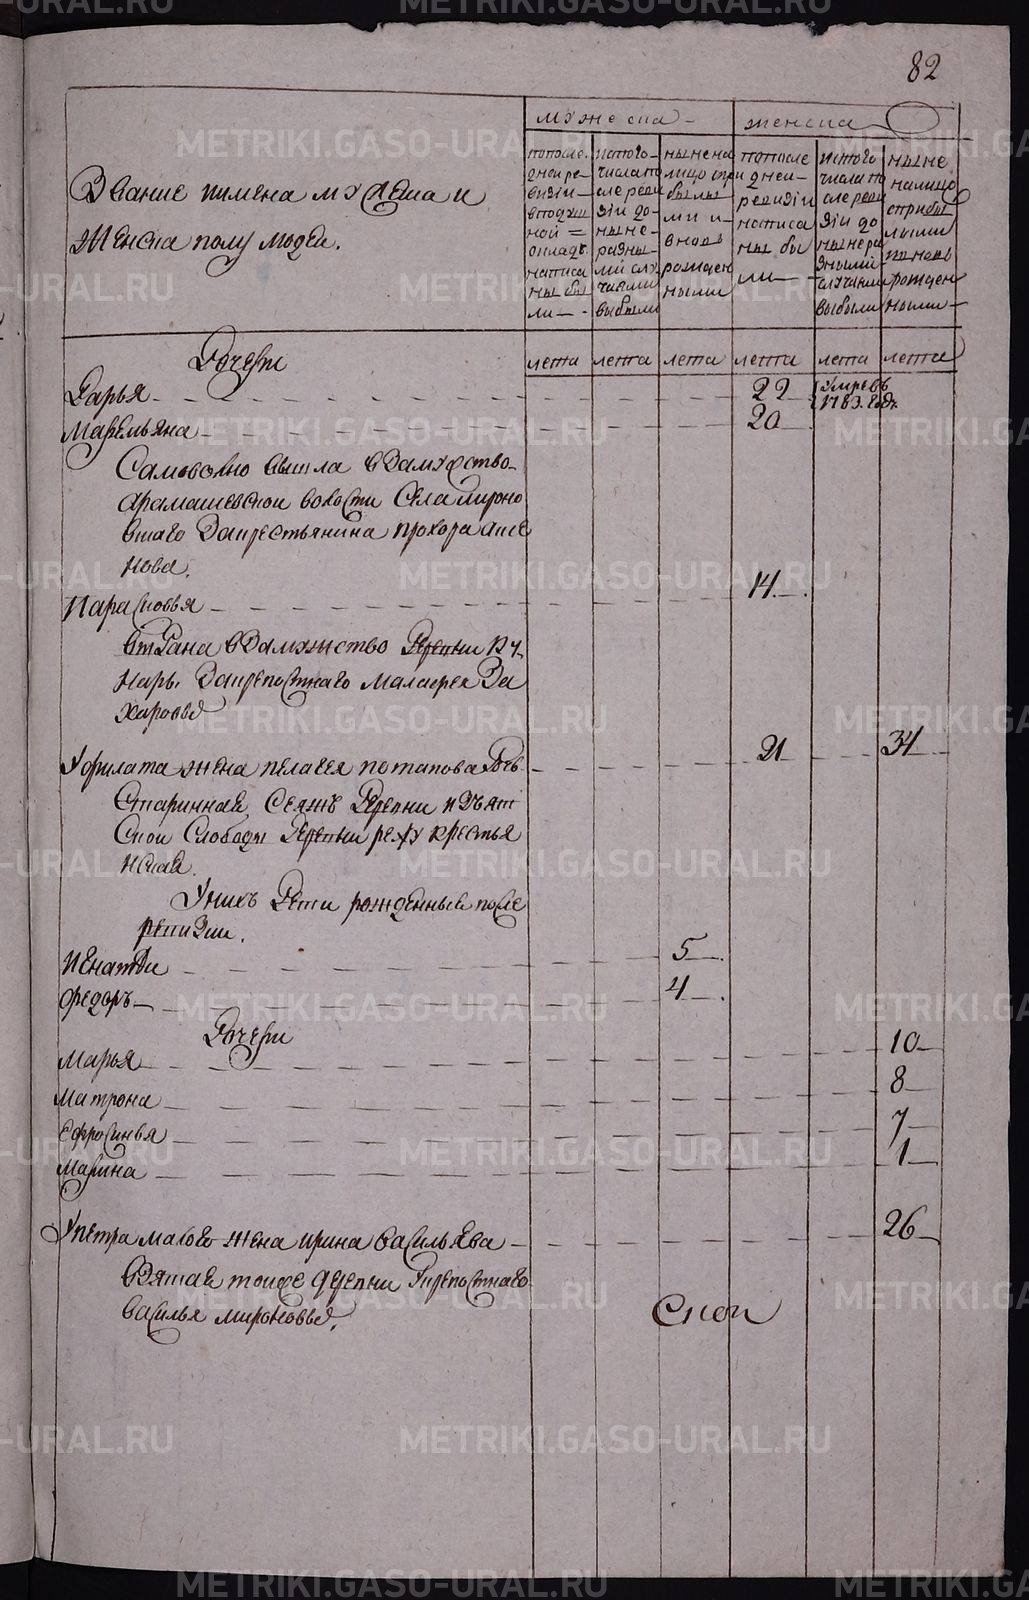 82
мужеска
женска
Звание имена мужеска и
женска полу людей.
попосле
дней ре-
визіи
вподуш
ной
окладъ
написа
ны бы
ли
истого
числа по
сле реви
зіи до
ныне
разны
ми слу
чаями
выбыли
ныне на
лицо при
былы
ми и
вновь
рожден
ными
попосле
дней
ревизіи
написа
ны бы
ли
истого
числа по
сле реви
зіи до
ныне ра
зными
случаями
выбыли
ныне
налицо
сприбы
лыми
и новь
рожден
ными
лета лета лета лета лета лета
Дочери
Дарья 22 умре въ
1783. год.
Маремьяна 20
Самовоно вышла взамужство
арамашевской волости Села мироно
вского за крестьянина прохора
нова.
Парасковья 14
отдана взамужство деревни
нарь. Закрепостнаго малафея За
харовы
У филата жена пелагея потапова дочь 21 34
Старинная Сеяжъ деревни
Слободы деревни крестья
нская.
У нихъ дети рожденные после
ревизии.
Игнатей 5
федоръ 4
Дочери
Марья 10
Матрона 8
Ефросинья 7
Марина 1
У петра малого жена ирина васильева 26
Взятая тоиже деревни Укрепостнаго
василья мироновы.
Скои
METRIKI.GASO-URAL.RU